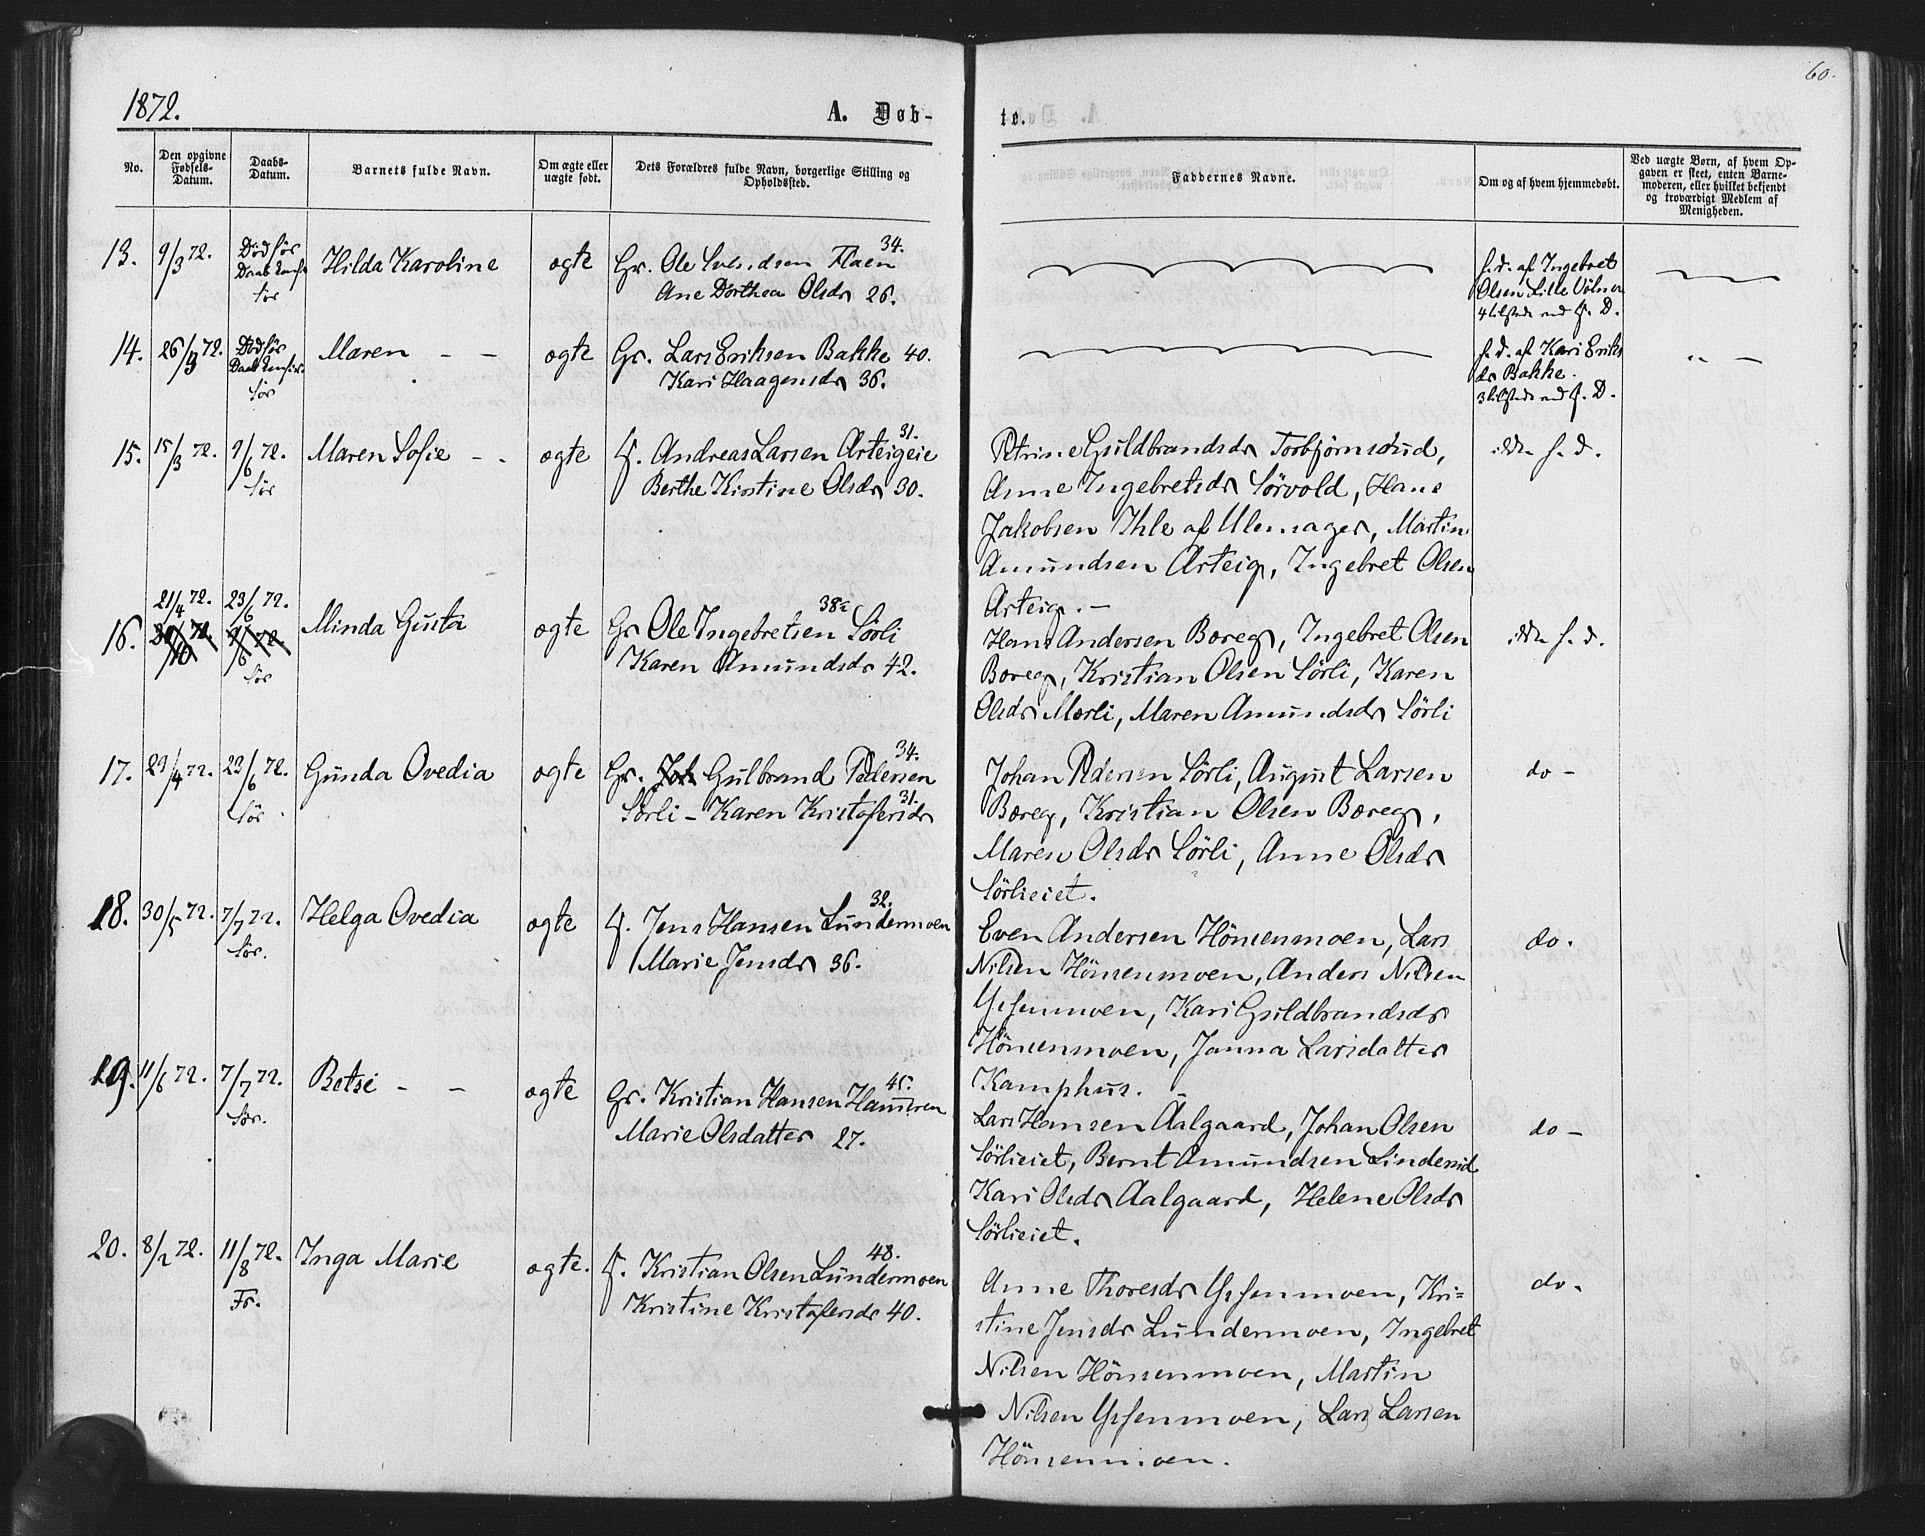 60.
1872.
A. Døb-
te.
No.
Den opgivne Fødsels-Datum.
Daabs-Datum.
Barnets fulde Navn.
Om ægte eller uægte født.
Dets Forældres fulde Navn, borgerlige Stilling og Opholdssted.
Faddernes Navne.
Om og af hvem hjemmedøbt.
Ved uægte Børn, af hvem Opgaven er skeet, enten Barnemoderen, eller hvilket bekjendt og troværdigt Medlem af Menigheden.
13. 9/3 72. Død før Daab Sør Hilda Karoline ægte Gr. Ole Svendsen Flaen 34.
Ane Dorthea Olsdr 26.
h. d. af Ingebret
Olsen Lille
14. 26/3 72. Død før Sør Maren - - ægte Gr. Lars Eriksen Bakke 40.
Kari Haagensdr 36.
h. d. af Kari Eriks
dr Bakke.
15. 15/3 72. 9/6 72. Sør Maren Sofie - - ægte Andreas Larsen Arteigeie 31.
Berthe Kirstine Olsdr 30.
Petrine Guldbrandsdr Torbjørnsrud,
Anne Ingebretsdr Sörvold, Hans
Jakobsen Ihle af Ulensager, Martin
Amundsen Arteig, Ingebret Olsen
Arteig. -
ikke h. d.
16. 21/4 72. 23/6 72. Sør Minda Gusta ægte Gr. Ole Ingebretsen Sörli 38
Karen Amundsdr 42.
Hans Andersen Boreg, Ingebret Olsen
Boreg, Kristian Olsen Sörli, Karen
Olsdr Morli, Maren Amundsdr Sörli
ikke h. d.
17. 29/4 72. 23/6 72. Sør Gunda Ovedia ægte Gr. Joh Gulbrand Pedersen 34.
Sörli - Karen Kristofersdr 31.
Johan Pedersen Sörli, August Larsen
Boreg, Kristian Olsen Boreg,
Maren Olsdr Sörli, Anne Olsdr
Sörlieiet.
do -
18. 30/5 72. 7/7 72. Sør. Helga Ovedia ægte Jens Hansen Lundermoen 32.
Marie Jensdr 36.
Even Andersen Hönsenmoen, Lars
Nilsen Hönsenmoen, Anders Nilsen
Kari Guldbrandsdr
Hönsenmoen, Janna Larsdatter
Kamphus. -
do.
19. 11/6 72. 7/7 72. Sør. Betsi - - ægte Gr. Kristian Hansen Hameren 45.
Marie Olsdatter 27.
Lars Hansen Aalgaard, Johan Olsen
Sörlieiet, Bernt Amundsen
Kari Olsdr Aalgaard, Helene Olsdr
Sörlieiet.
do -
20. 8/2 72. 11/8 72. Fr. Inga Marie ægte. Kristian Olsen Lundermoen 48.
Kristine Kristofersdr 40.
Anne Thoresdr Kri=
stine Jensdr Lundermoen, Ingebret
Nilsen Hönsenmoen, Martin
Nilsen Lars Larsen
Hönsenmoen.
do.